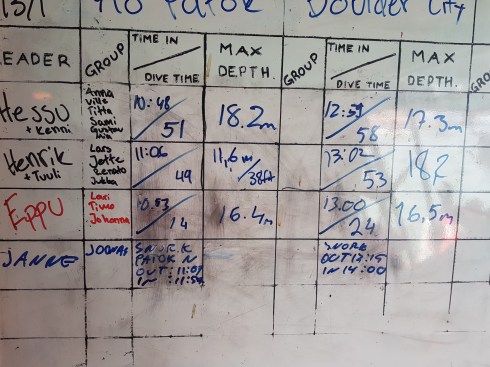 13/1 Ho Palok Boulder City
LEADER GROUP TIME IN / DIVE TIME MAX DEPTH. GROUP TIME IN / DIVE TIME MAX DEPTH. GROUP
Hessu + Kenni
Anna
Ville
Titta
Sami
Gustav
Iain
10:48 / 51
18.2m
12:59 / 58
17.3m
Henrik + Tuuli
Lars
Jette
Renato
Jukka
11:06 / 49
11,6m / 38ft
13:02 / 53
182
EPPU
Lauri
Timo
Johanna
10.53 / 14
16.4m
13.00 / 24
16,5m
JANNE
JOONAS
SNORK
PATOK N
OUT: 11:09
IN : 11:54
SNORK
OUT 13:15
IN 14:00